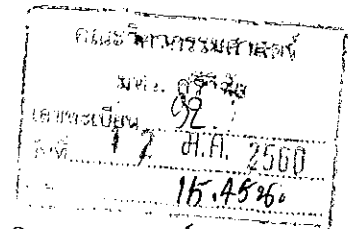 คณะวิศวกรรมศาสตร์
มทร. ศรีวิชัย
เลขทะเบียน 92
วันที่ 17 ม.ค. 2560
15.45น.